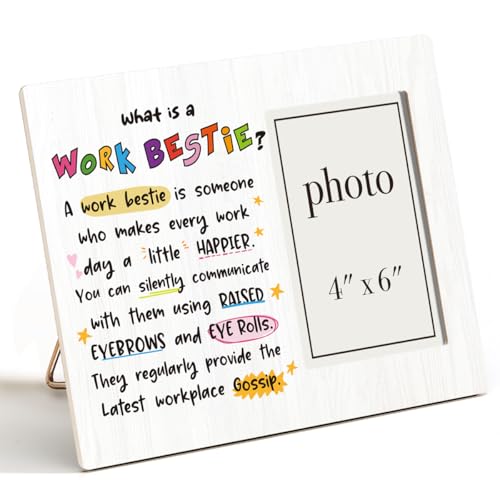 What is a
WORK BESTIE?
A work bestie is someone
who makes every work
day a little HAPPIER.
You can silently communicate
with them using RAISED
EYEBROWS and EYE Rolls.
They regularly provide the
Latest workplace Gossip.
photo
4" x 6"